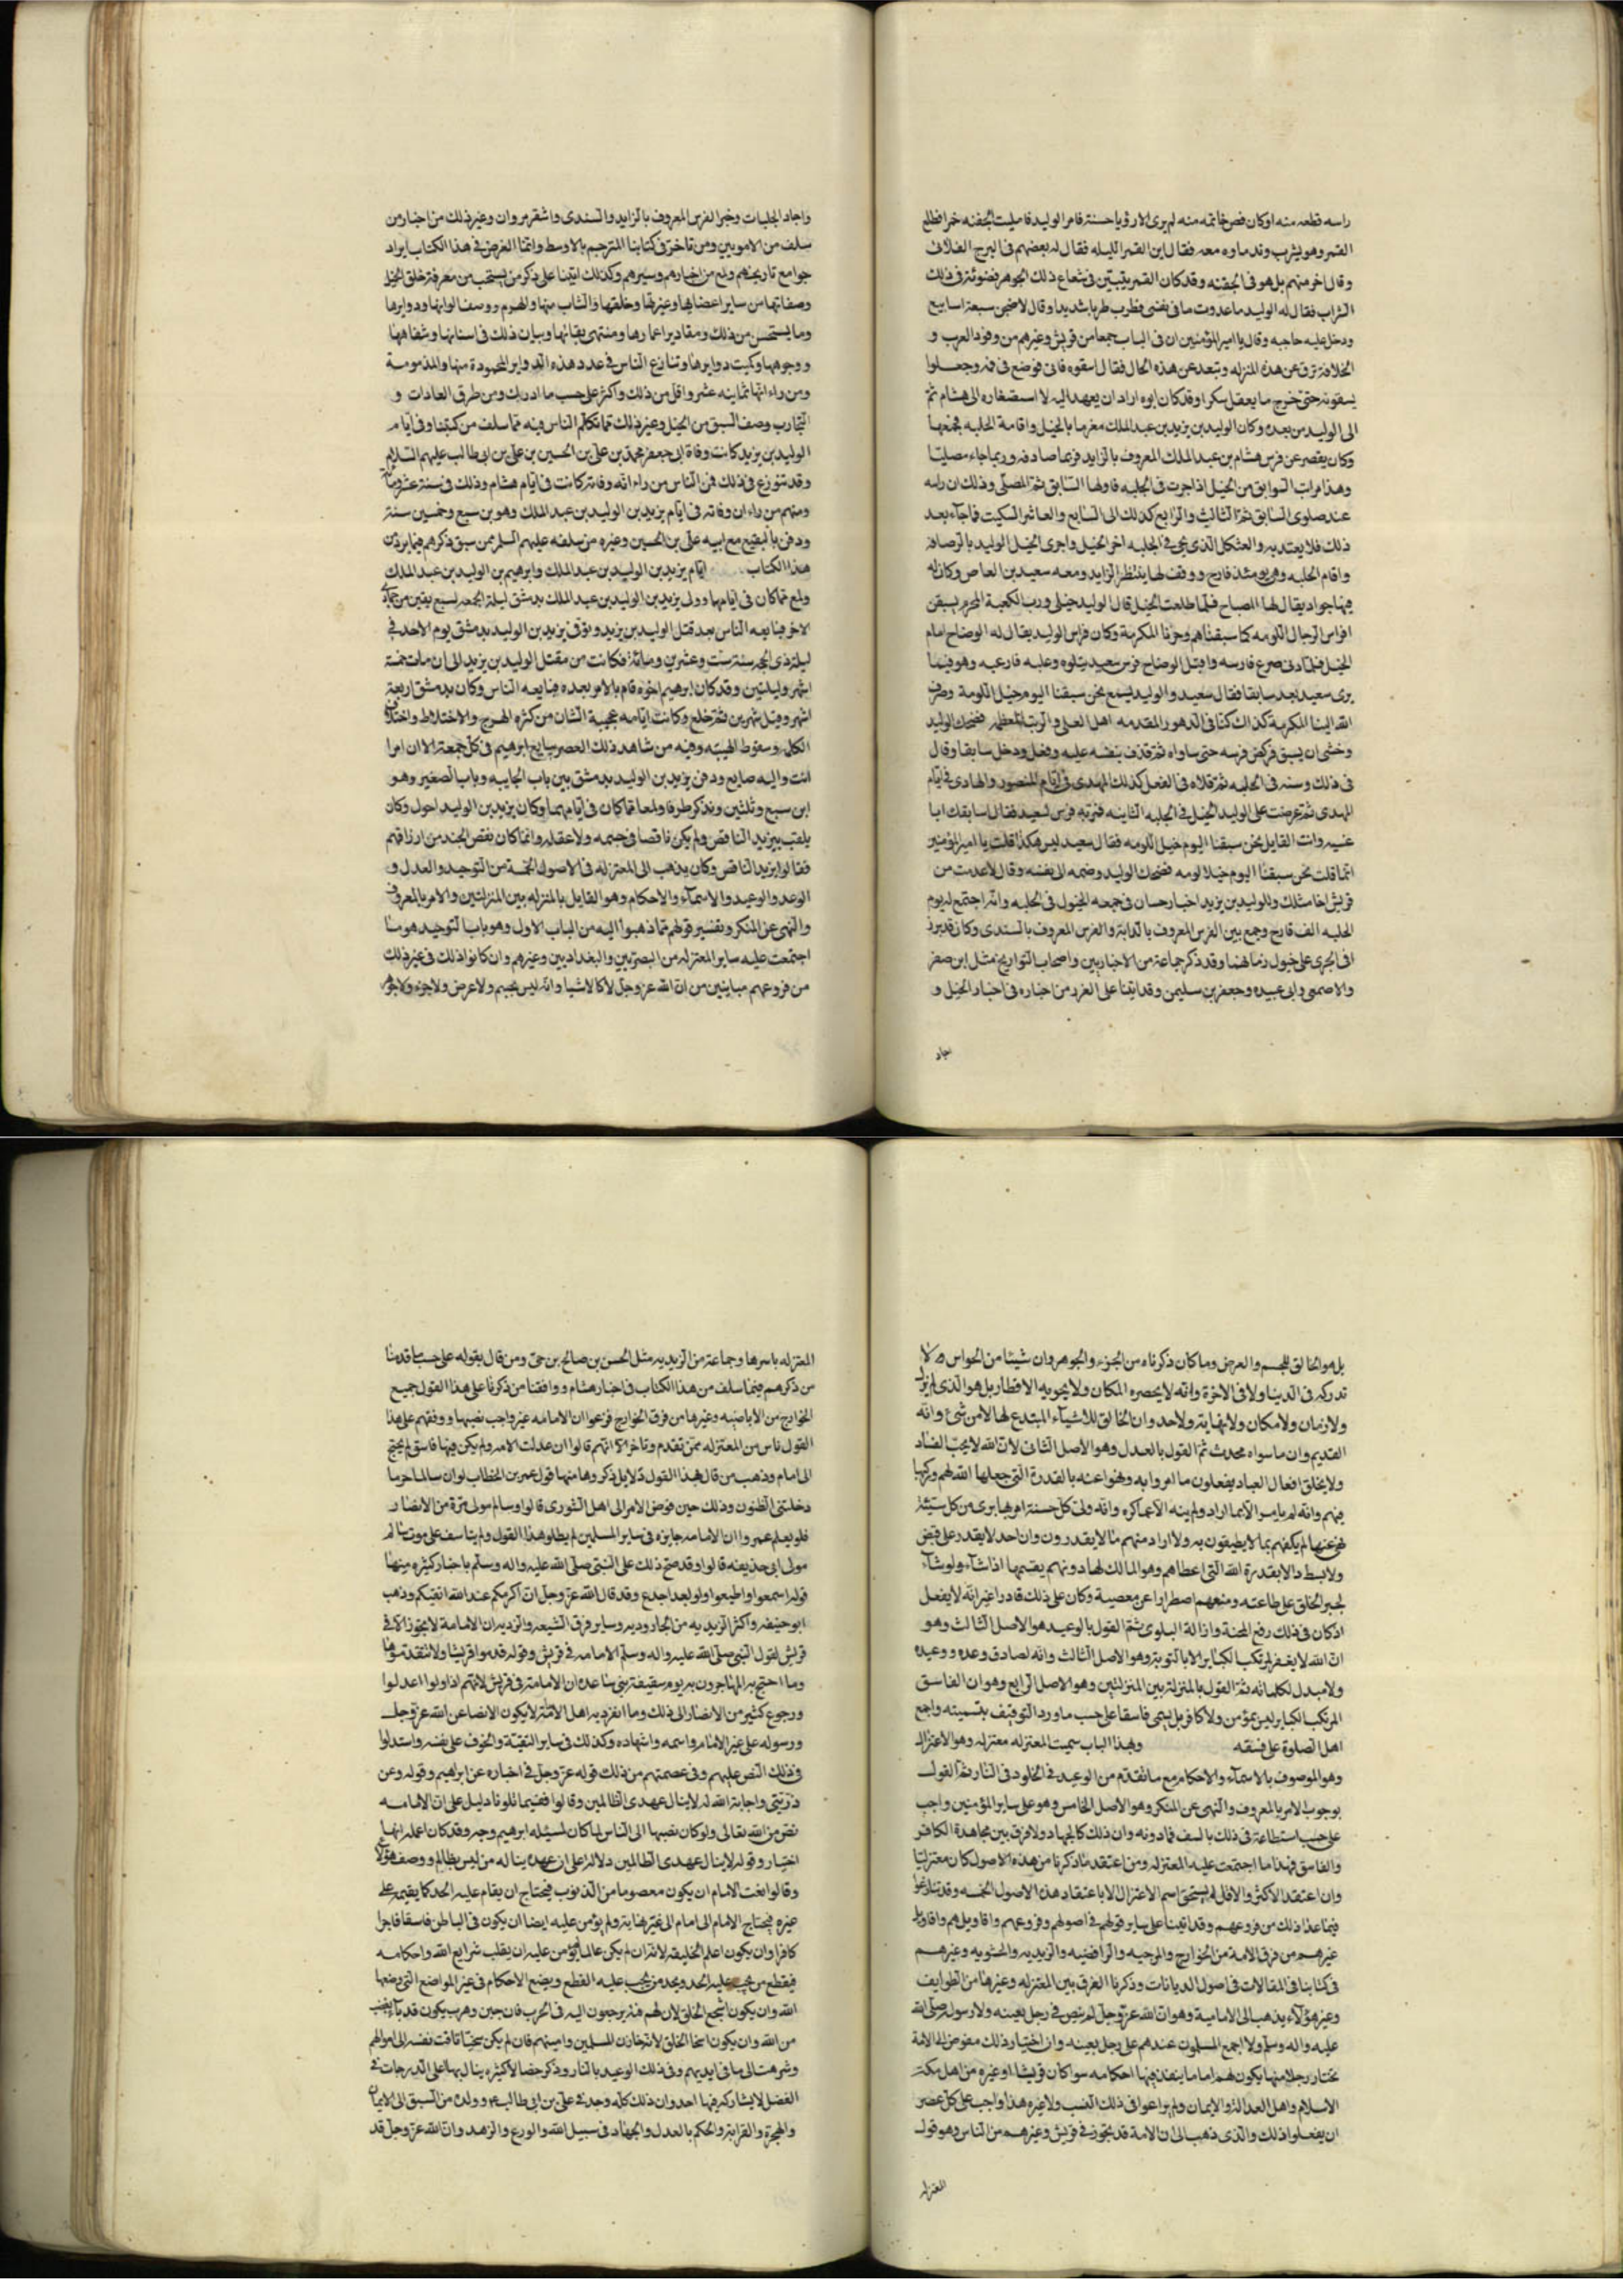 راسه قطعه منه اوكان فص خاتمه منه لم يرى الا رؤيا حسنة فامر الوليد فامليت الجفنه خمرا فطلع
القمر وهو يشرب وندماوه معه فقال اين القمر الليله فقال له بعضهم فى البرج الفلانى
وقال اخر منهم بل هو فى الجفنه وقد كان القمر يتبين فى شعاع ذلك الجوهر فضوئه فى ذلك
الشراب فقال له الوليد ما عدوت ما فى نفسى فطرب طربا شديدا وقال لاضجن سبعة اسابيع
ودخل عليه حاجبه وقال يا امير المؤمنين ان فى الباب جمعا من قريش وغيرهم من وفود العرب و
الخلافة ترق عن هذه المنزله وتبعد عن هذه الحال فقال اسقوه فابى فوضع فى فمه وجعلوا
يسقونه حتى خرج ما يعقل سكرا وقد كان ابوه اراد ان يعهد اليه لا استصغاره الى هشام ثم
الى الوليد من بعده وكان الوليد بن يزيد بن عبد الملك مغرما بالخيل واقامة الحلبه فجمعها
وكان يقصر عن فرس هشام بن عبد الملك المعروف بالزايد فربما صادفه وربما جاء مصليا
وهذا مراتب السوابق من الخيل اذا جرت فى الحلبه فاولها السابق ثم المصلى وذلك ان راسه
عند صلوى السابق ثم الثالث والرابع كذلك الى السابع والعاشر السكيت فما جاء بعد
ذلك فلا يعتد به والعشكل الذى يجى فى الحلبه اخر الخيل واجرى الخيل الوليد بالرصافه
واقام الحلبه وهى يومئذ الف فارح ووقف لها ينتظر الزايد ومعه سعيد بن العاص وكان له
فيها جواد يقال لها المصباح فلما طلعت الخيل قال الوليد خيلى ورب الكعبة المحرم يسبقن
افراس الرجال اللومه كما سبقناهم وحزنا المكرمة وكان فراس الوليد يقال له الوضاح امام
الخيل فلما دنى صرع فارسه واقبل الوضاح فرس سعيد يتلوه وعليه فارعبه وهو فيما
يرى سعيد بعد سابقا فقال سعيد والوليد يسمع نحن سبقنا اليوم خيل اللومة وصرف
الله الينا المكرمة كذاك كنا فى الدهور المقدمه اهل العلى والرتب المعظمه فضحك الوليد
وخشى ان يسبق فركض فرسه حتى ساواه ثم قذف بنفسه عليه وفعل ودخل سابقا وقال
فى ذلك وسنه فى الحلبه ثم تلاه فى الفعل كذلك المهدى فى ايام المنصور والهادى فى ايام
المهدى ثم عرضت على الوليد الخيل فى الحلبه الثانيه فمر به فرس لسعيد فقال لا نسابقك ابا
عنبسه وانت القايل نحن سبقنا اليوم خيل اللومه فقال سعيد ليس هكذا قلت يا امير المؤمنين
انما قلت نحن سبقنا اليوم خيلا لومه فضحك الوليد وضمه الى نفسه وقال لا عدمت من
قريش اخا مثلك وللوليد بن يزيد اخبار حسان فى جمعه الخيول فى الحلبه وانه اجتمع له يوم
الحلبه الف قارح وجمع بين الفرس المعروف بالزايد والفرس المعروف بالسندى وكان قد برز
افى الجرى على خيول زمانهما وقد ذكر جماعة من الاخباريين واصحاب التواريخ مثل ابن صفر
والاصمعى وابى عبيده وجعفر بن سليمن وقد اتينا على الغرر من اخباره فى اخبار الخيل و
اجاد
واجاد الجلبات وخبر الفرس المعروف بالزايد والسندى واشقر مروان وغير ذلك من اخبار من
سلف من الامويين ومن تاخر فى كتابنا المترجم بالاوسط وانما الغرض فى هذا الكتاب ايراد
جوامع تاريخهم ولمع من اخبارهم وسيرهم وكذلك اتينا على ذكر من يستحب من معرفة خلق الخيل
وصفاتها من ساير اعضايها وغيرها وخلقتها والشاب منها والهرم ووصف الوانها ودوايرها
وما يستحسن من ذلك ومقادير اعمارها ومنتهى بقائها وبيان ذلك فى اسنانها وشفاهها
ووجوهها وكميت دوايرها وتنازع الناس فى عدد هذه الدواير المحمودة منها والمذمومة
ومن راء انها ثمانيه عشر واقل من ذلك واكثر على حسب ما ادرك ومن طرق العادات و
التجارب وصف السبق من الخيل وغير ذلك مما تكلم الناس فيه مما سلف من كتبنا وفى ايام
الوليد بن يزيد كانت وفاة ابى جعفر محمد بن على بن الحسين بن على بن ابى طالب عليهم السلام
وقد تنوزع فى ذلك فمن الناس من راء انه وفاته كانت فى ايام هشام وذلك فى سنة عشر ومايه
ومنهم من راء ان وفاته فى ايام يزيد بن الوليد بن عبد الملك وهو بن سبع وخمسين سنة
ودفن بالبقيع مع ابيه على بن الحسين وغيره من سلفه عليهم السلم ممن سبق ذكرهم فيما يرد من
هذا الكتاب ايام يزيد بن الوليد بن عبد الملك وابرهيم بن الوليد بن عبد الملك
ولمع مما كان فى ايامها وولى يزيد بن الوليد بن عبد الملك بدمشق ليلة الجمعه لسبع بقين من جمادى
الاخر فبايعه الناس بعد قتل الوليد بن يزيد وتوفى يزيد بن الوليد بدمشق يوم الاحد فى
ليلة ذى الحجه سنه ست وعشرين ومائة فكانت من مقتل الوليد بن يزيد الى ان مات خمسة
اشهر وليلتين وقد كان ابرهيم اخوه قام بالامر بعده فبايعه الناس وكان بدمشق اربعة
اشهر وقيل شهرين ثم خلع وكانت ايامه عجيبة الشان من كثره الهرج والاختلاط واختلاف
الكلم وسقوط الهيبه وفيه من شاهد ذلك العصر يبايع ابرهيم فى كل جمعة الا ان امرا
انت واليه ضايع ودفن يزيد بن الوليد بدمشق بين باب الجابيه وباب الصغير وهو
ابن سبع وثلثين ونذكر طرفا ولمعا مما كان فى ايامهما وكان يزيد بن الوليد احول وكان
يلقب بيزيد الناقص ولم يكن ناقصا فى جسمه ولا عقله وانما كان نقص الجند من ارزاقهم
فقالوا يزيد الناقص وكان يذهب الى المعتزله فى الاصول الخمسة من التوحيد والعدل و
الوعد والوعيد والاسماء والاحكام وهو القايل بالمنزله بين المنزلتين والامر بالمعروف
والنهى عن المنكر وتفسير قولهم مما ذهبوا اليه من الباب الاول وهو باب التوحيد هو ما
اجتمعت عليه ساير المعتزله من البصريين والبغداديين وغيرهم وان كانوا ذلك فى غير ذلك
من فروعهم مباينين من ان الله عز وجل لا كالاشيا وانه ليس بجسم ولا عرض ولا جزء ولا جوهر
بل هو الخالق للجسم والعرض وما كان ذكرناه من الجزء والجوهر وان شيئا من الحواس لا
تدركه فى الدنيا ولا فى الاخرة وانه لا يحصره المكان ولا يحويه الاقطار بل هو الذى لم يزل
ولا زمان ولا مكان ولا نهاية ولا حد وان الخالق للاشياء المبتدع لها لا من شئ وانه
القديم وان ما سواه محدث ثم القول بالعدل وهو الاصل الثانى لان الله لا يحب الفساد
ولا يخلق افعال العباد يفعلون ما امروا به ونهوا عنه بالقدرة التى جعلها الله لهم وركبها
فيهم وانه لم يامر الا بما اراد ولم ينه الا عما كره وانه ولى كل حسنة امر بها برى من كل سيئة
نهى عنها لم يكلفهم بما لا يطيقون به ولا اراد منهم ما لا يقدرون وان احد لا يقدر على قبض
ولا بسط الا بقدرة الله التى اعطاهم وهو المالك لها دونهم يفنيها اذا شاء ولو شاء
لجبر الخلق على طاعته ومنعهم اضطرارا عن معصية وكان على ذلك قادرا غير انه لا يفعل
اذ كان فى ذلك رفع المحنة وازالة البلوى ثم القول بالوعيد هو الاصل الثالث وهو
ان الله لا يغفر لمرتكب الكباير الا بالتوبة وهو الاصل الثالث وانه لصادق وعده ووعيده
ولا مبدل لكلماته ثم القول بالمنزلة بين المنزلتين وهو الاصل الرابع وهو ان الفاسق
المرتكب الكباير ليس بمؤمن ولا كافر بل يسمى فاسقا على حسب ما ورد التوقيف بتسميته واجمع
اهل الصلوة على فسقه وبهذا الباب سميت المعتزله معتزله وهو الاعتزال
وهو الموصوف بالاسماء والاحكام مع ما تقدم من الوعيد فى الخلود فى النار ثم القول
بوجوب الامر بالمعروف والنهى عن المنكر وهو الاصل الخامس وهو على ساير المؤمنين واجب
على حسب استطاعة فى ذلك بالسف فما دونه وان ذلك كالجهاد ولا فرق بين مجاهدة الكافر
والفاسق فهذا ما اجتمعت عليه المعتزله ومن اعتقد ما ذكرنا من هذه الاصول كان معتزليا
وان اعتقد الاكثر والاقل لم يستحق اسم الاعتزال الا باعتقاد هذه الاصول الخمسه وقد تنازعوا
فيما عدا ذلك من فروعهم وقد اتينا على ساير قولهم فى اصولهم وفروعهم واقاويلهم واقاويل
غيرهم من فرق الامة من الخوارج والمرجيه والرافضيه والزيديه والحشويه وغيرهم
فى كتابنا فى المقالات فى اصول الديانات وذكرنا الفرق بين المعتزله وغيرها من الطوايف
وغير هؤلاء يذهب الى الامامية وهو ان الله عز وجل لم ينص فى رجل بعينه ولا رسول صلى الله
عليه واله وسلم ولا اجمع المسلمون عندهم على رجل بعينه وان اختيار ذلك مفوض الى الامة
تختار رجلا منها يكون لهم اماما ينفذ فيها احكامه سوا كان قريشا او غيره من اهل مكة
الاسلام واهل العدالة والايمان ولم يراعوا فى ذلك النسب ولا غيره هذا واجب على كل عصر
ان يفعلوا ذلك والذى ذهب الى ان الامة قد تجوز فى قريش وغيرهم من الناس وهو قول
المعتزله
المعتزله باسرها وجماعة من الزيديه مثل الحسن بن صالح بن حى ومن قال بقوله على حسب ما قدمنا
من ذكرهم فيما سلف من هذا الكتاب فى اخبار هشام ووافقنا من ذكرنا على هذا القول جميع
الخوارج من الاباضيه وغيرها من فرق الخوارج فزعموا ان الامامه غير واجب نصبها ووفقهم على هذا
القول ناس من المعتزله ممن تقدم وتاخر الا انهم قالوا ان عدلت الامه ولم يكن فيها فاسق لم يحتج
الى امام وذهب من قال بهذا القول دلايل ذكروها منها قول عمر بن الخطاب لو ان سالما حرما
دخلتنى الظنون وذلك حين فوض الامر الى اهل الشورى قالوا وسالم مولى مرة من الانصار
فلو يعلم عمر وان الامامه جايزه فى ساير المسلمين لم يطلو هذا القول ولم يتاسف على موت سالم
مولى ابى حذيفه قالوا وقد صح ذلك على النبى صلى الله عليه واله وسلم باخبار كثيره منها
قوله اسمعوا واطيعوا ولو لعبد اجدع وقد قال الله عز وجل ان اكرمكم عند الله اتقيكم وذهب
ابو حنيفه واكثر الزيديه من الجاروديه وساير فرق الشيعه والزيديه ان الامامة لا يجوز الا فى
قريش لقول النبى صلى الله عليه واله وسلم الامامه فى قريش وقوله قدموا قريشا ولا تتقدموها
وما احتج به المهاجرون به يوم سقيفة بنى ساعده ان الامامة فى قريش لانهم اذا ولوا اعدلوا
ورجوع كثير من الانصار الى ذلك وما انفرد به اهل الامامة لا يكون الا نصا عن الله عز وجل
ورسوله على غير الامام واسمه واشهاده وكذلك فى ساير التقية والخوف على نفسه واستدلوا
فى ذلك النص عليهم وفى عصمتهم من ذلك قوله عز وجل فى اخباره عن ابراهيم وقوله ومن
ذريتى واجابة الله له لا ينال عهدى الظالمين وقالوا ففيما تلونا دليل على ان الامامه
نص من الله تعالى ولو كان نصبها الى الناس لما كان لمسئله ابرهيم وجه وقد كان اعلمه انها
اختيار وقوله لا ينال عهدى الظالمين دلاله على ان عهده يناله من ليس بظالم ووصف هؤلاء
وقالوا نعت الامام ان يكون معصوما من الذنوب فيحتاج ان يقام عليه الحد كما يقيمه على
غيره فيحتاج الامام الى امام الى غير نهايه ولم يؤمن عليه ايضا ان يكون فى الباطن فاسقا فاجرا
كافرا وان يكون اعلم الخليقه لانه ان لم يكن عالما لم يؤمن عليه ان يقلب شرايع الله واحكامه
فيقطع من يجب عليه الحد ويحد من يجب عليه القطع ويضع الاحكام فى غير المواضع التى وضعها
الله وان يكون اشجع الخلق لان لهم فئة يرجعون اليه فى الحرب فان جبن وهرب يكون قد باء بغضب
من الله وان يكون اسخا الخلق لانه خازن المسلمين وامينهم فان لم يكن سخيا تاقت نفسه الى اموالهم
وشرهت الى ما فى ايديهم وفى ذلك الوعيد بالنار وذكر خصالا كثيره ينال بها على الدرجات فى
الفضل لا يشاركه فيها احد وان ذلك كله وجد فى على بن ابى طالب وولده من السبق الى الايمان
والهجرة والقرابة والحكم بالعدل والجهاد فى سبيل الله والورع والزهد وان الله عز وجل قد